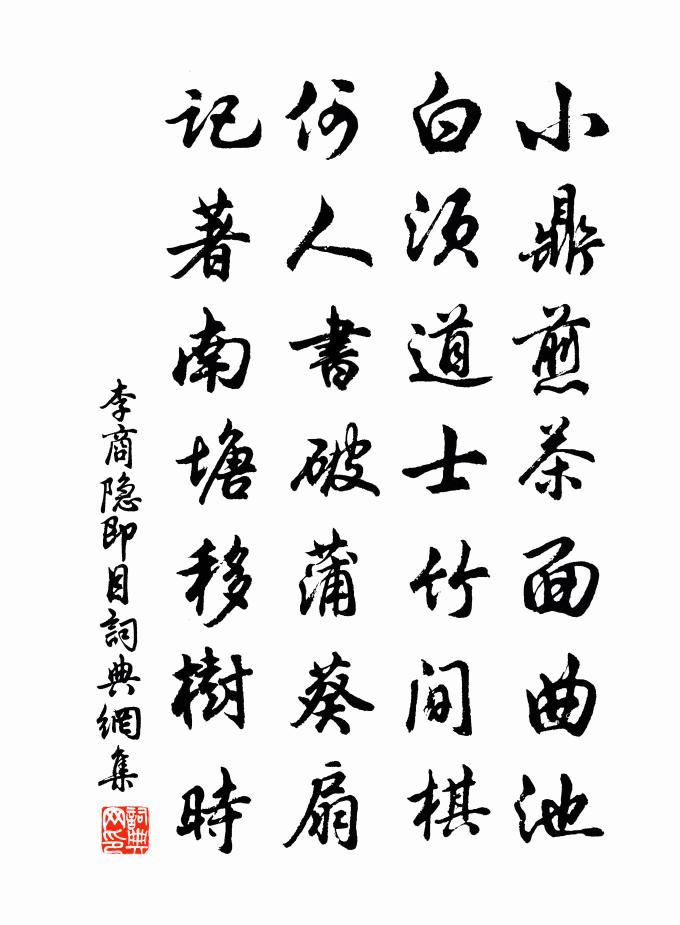 小鼎煎茶面曲池
白须道士竹间棋
何人書破蒲葵扇
记著南塘移樹時
李商隐即目詞典網集
詞典网印